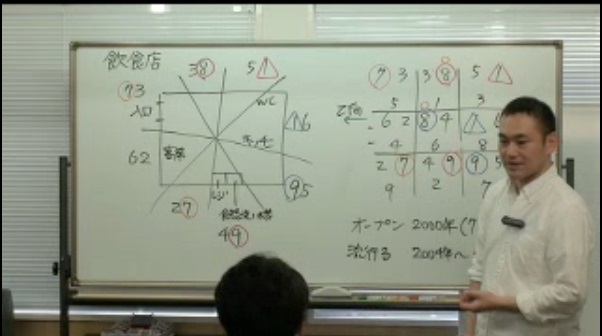 飲食店
38 51
73
WC
入口
16
キッチン
62 客席
レジ
27
95
49
7 3 3 8 5 1
5 1 3
6 2 8 4 1 6
4 6 8
2 7 4 9 9 5
9 2 7
オープン 2000年(7
流行る 2004年〜